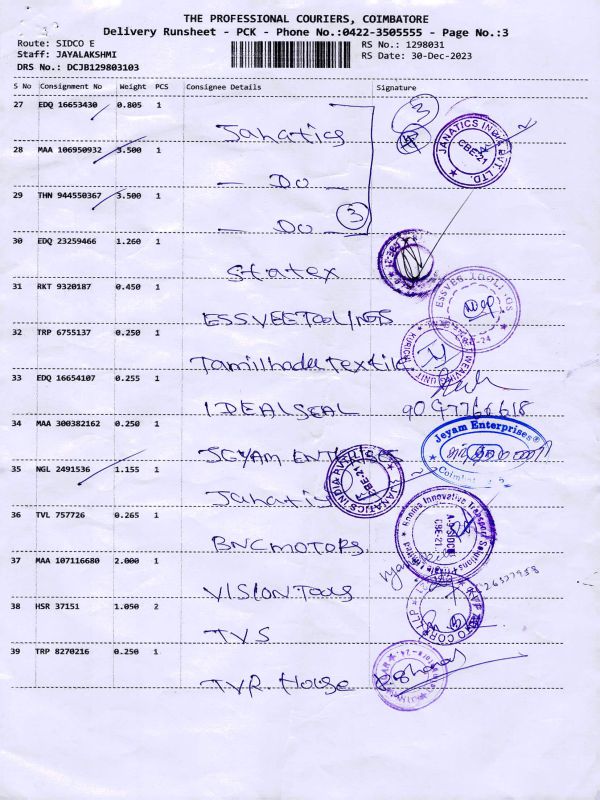 THE PROFESSIONAL COURIERS, COIMBATORE
Delivery Runsheet - PCK - Phone No.:0422-3505555 - Page No.:3
Route: SIDCO E
RS No.: 1298031
Staff: JAYALAKSHMI
RS Date: 30-Dec-2023
DRS No.: DCJB129803103
S No Consignment No Weight PCS Consignee Details Signature
27 EDQ 16653430 0.805 1
Janatics
3
JANATICS INDIA PVT. LTD.
CBE-21
28 MAA 106950932 3.500 1
— Do —
29 THN 944550367 3.500 1
— Do —
3
30 EDQ 23259466 1.260 1
Statex
31 RKT 9320187 0.450 1
ESSVEE TOOLINGS
ESSVEE TOOLINGS
32 TRP 6755137 0.250 1
Tamilnadu Textile
WEAVING UNIT
KURICHI
33 EDQ 16654107 0.255 1
IDEAL SEAL
34 MAA 300382162 0.250 1
JEYAM ENTERPRISES
Jeyam Enterprises®
Coimbatore
35 NGL 2491536 1.155 1
Janatics
JANATICS INDIA PVT LTD
CBE-21
36 TVL 757726 0.265 1
BNC MOTORS
Innovative Transport Solutions Private Limited
SIDCO
CBE-21
37 MAA 107116680 2.000 1
VISION Tools
38 HSR 37151 1.050 2
TVS
CORP LLP
39 TRP 8270216 0.250 1
TVR. House